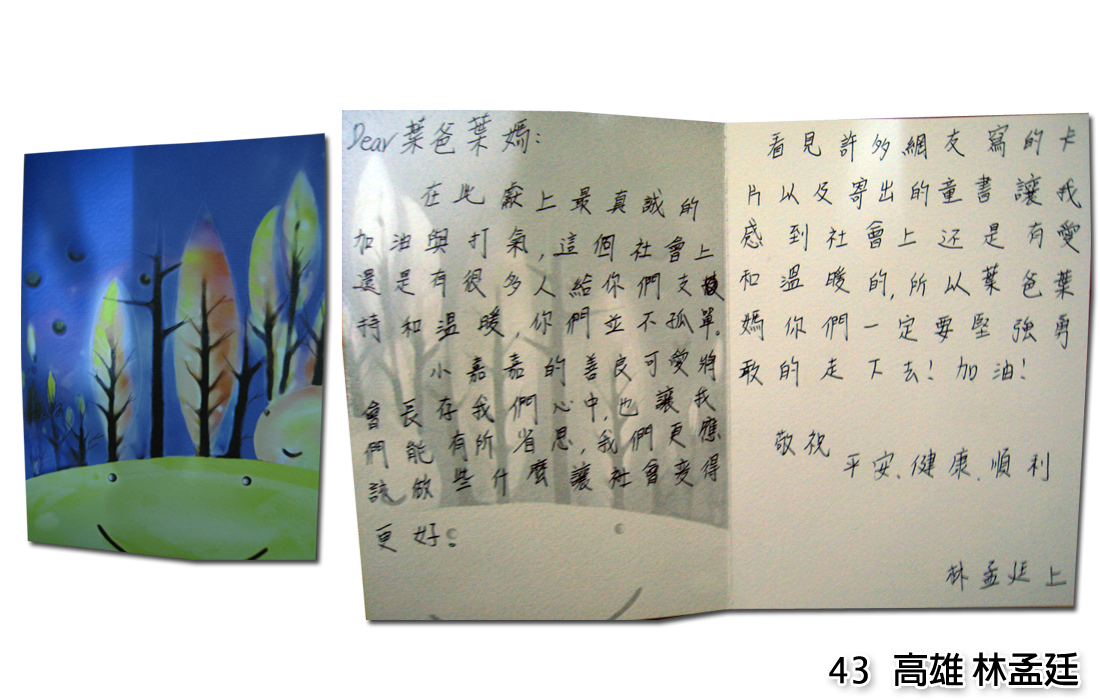 Dear 葉爸葉媽：
在此獻上最真誠的
加油與打氣,這個社會上
還是有很多人給你們支
持和温暖,你們並不孤單。
小嘉嘉的善良可愛將
會長存我們心中,也讓我
們能有所省思,我們更應
該做些什麼讓社會变得
更好。
看見許多網友寫的卡
片以及寄出的童書讓我
感到社會上还是有愛
和温暖的,所以葉爸葉
媽你們一定要堅強勇
敢的走下去!加油!
敬祝
平安、健康、順利
林孟廷上
43 高雄 林孟廷